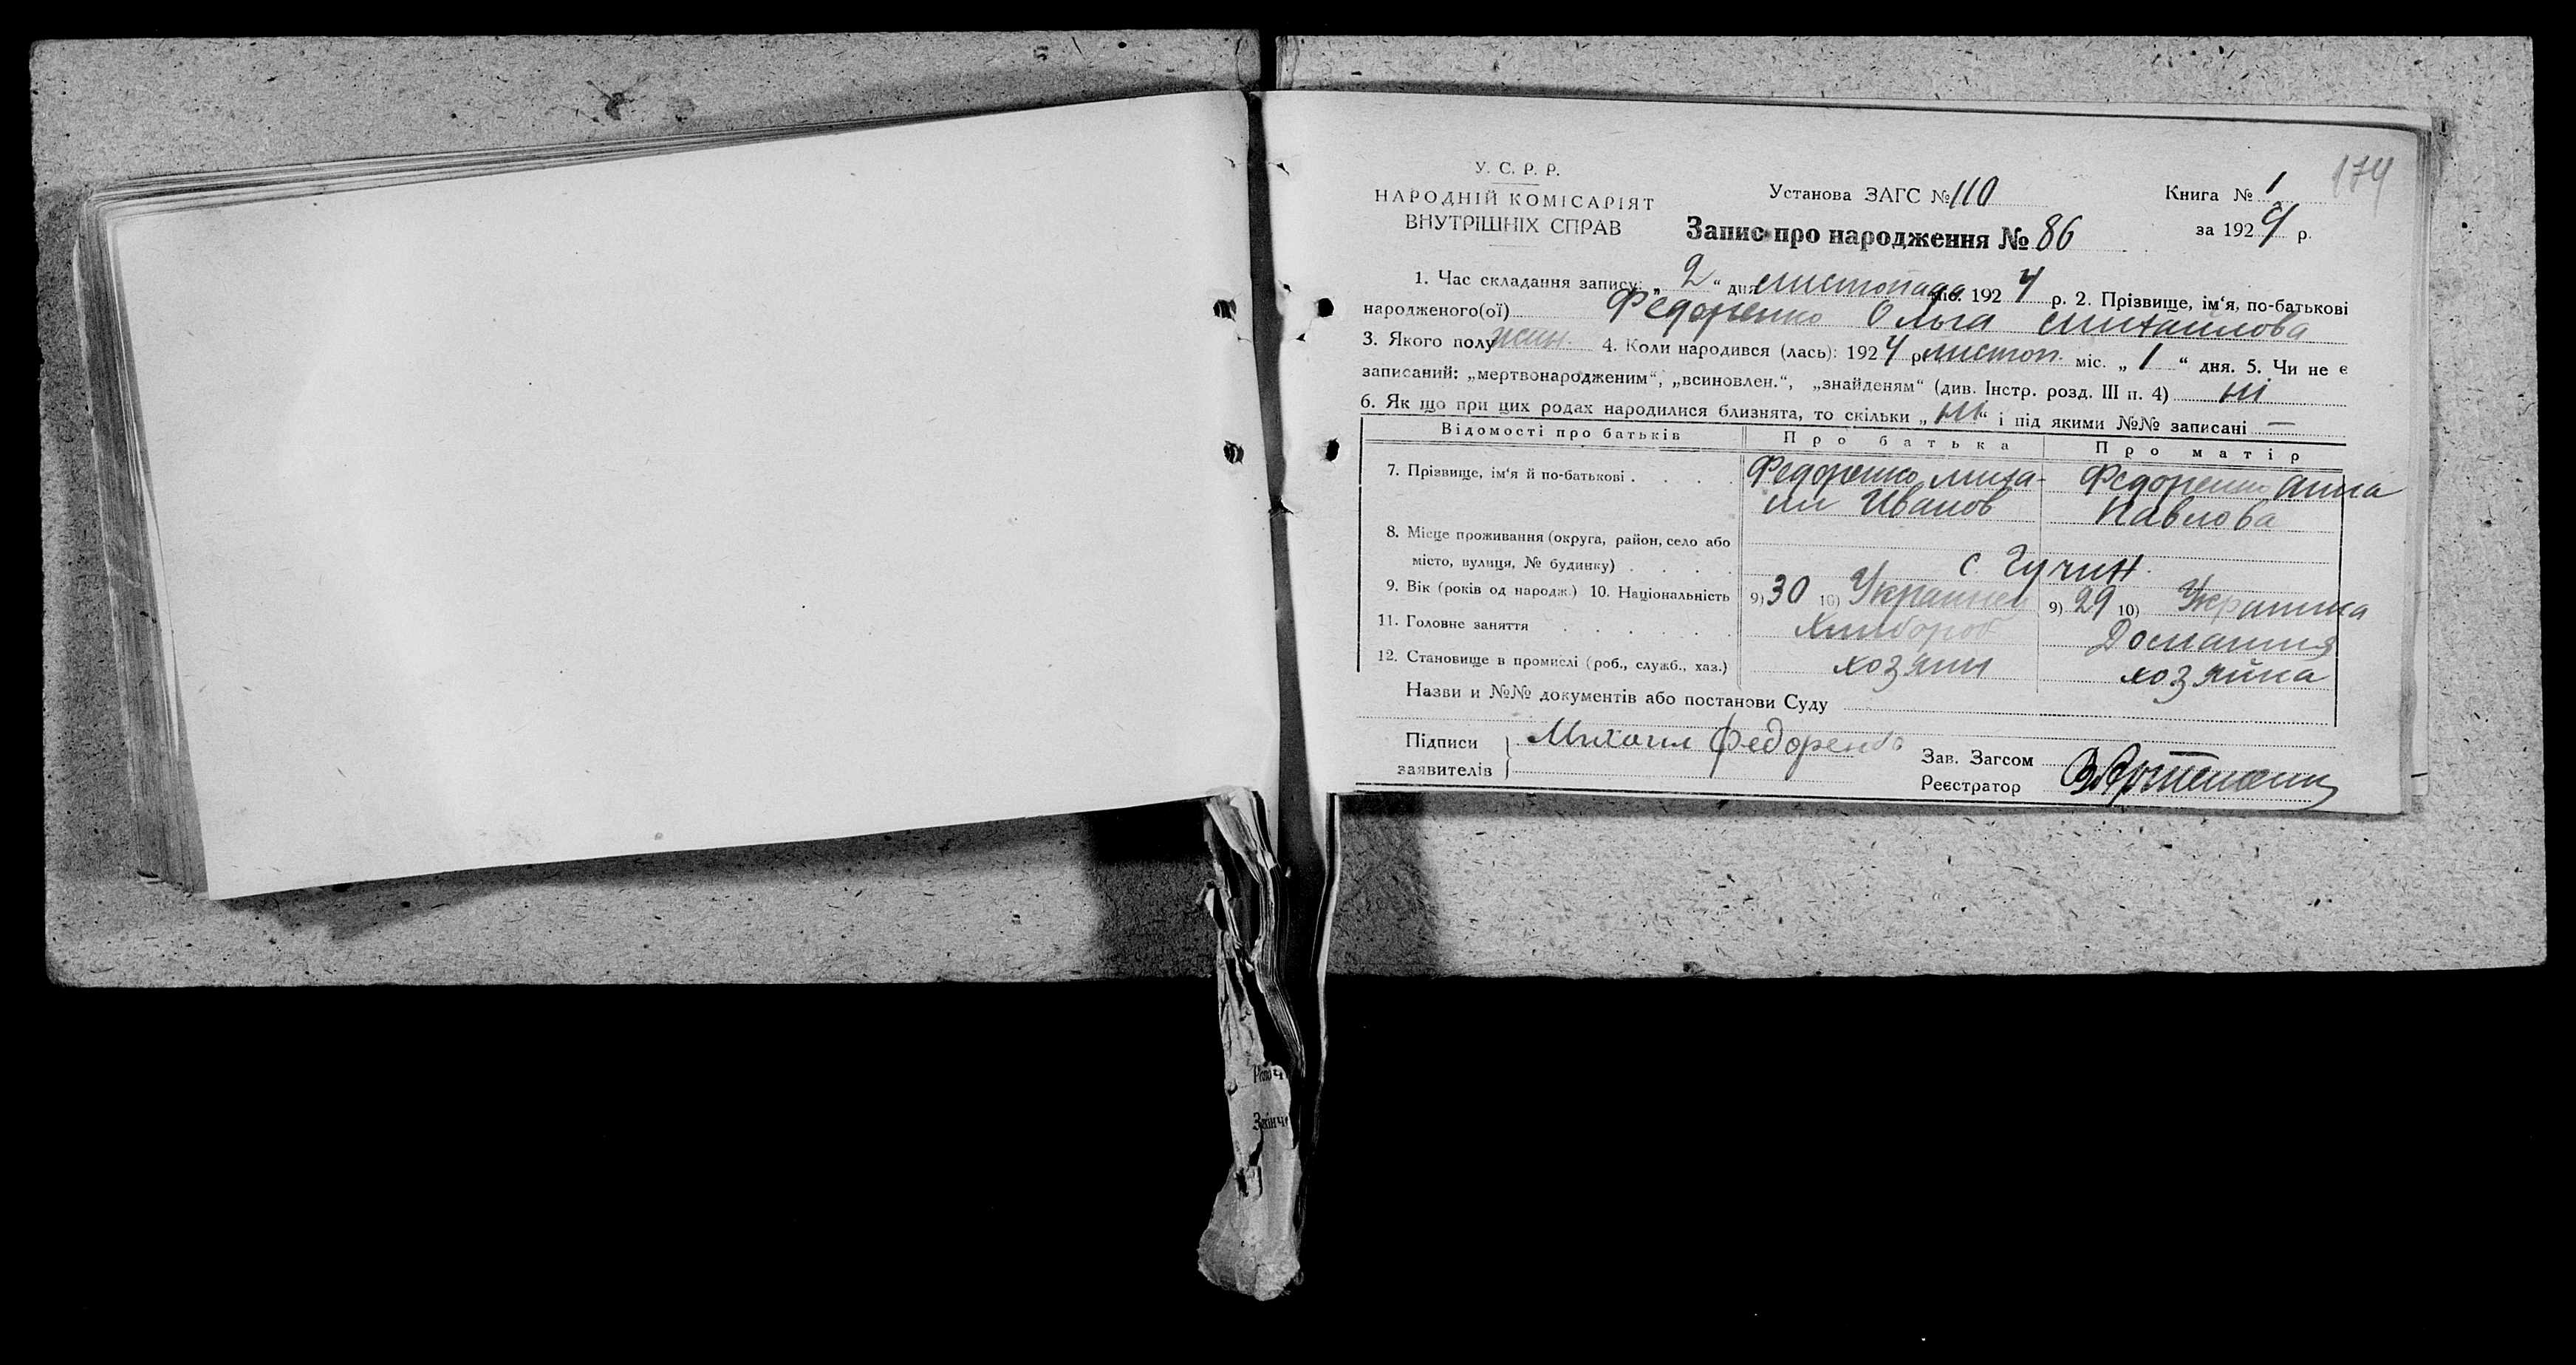 174
У. С. Р. Р.
НАРОДНІЙ КОМІСАРІЯТ
ВНУТРІШНІХ СПРАВ
Установа ЗАГС № 110
Книга № 1
Запис про народження № 86
за 1924 р.
1. Час складання запису: „ 2 “ дня листопада міс. 1924 р. 2. Прізвище, ім‘я, по-батькові
народженого(ої) Федоренко Ольга Михайлова
3. Якого полу жін. 4. Коли народився (лась): 1924 р. листоп. міс. „ 1 “ дня. 5. Чи не є
записаний: „мертвонародженим“, „всиновлен.“, „знайденям“ (див. Інстр. розд. III п. 4) ні
6. Як що при цих родах народилися близнята, то скільки „ ні “ і під якими №№ записані —
Відомості про батьків Про батька Про матір
7. Прізвище, ім‘я й по-батькові . . . . Федоренко Миха- Федоренко Анна
ил Иванов Павлова
8. Місце проживання (округа, район, село або
місто, вулиця, № будинку) . . . . с. Гучин
9. Вік (років од народж.) 10. Національність 9) 30 10) Украинец 9) 29 10) Украинка
11. Головне заняття . . . . . . Хлибороб Домашня
12. Становище в промислі (роб., служб., хаз.) хозяин хозяйка
Назви и №№ документів або постанови Суду
Підписи Михаил Федоренко
заявителів
Зав. Загсом
Реєстратор
Реєч
Звінч